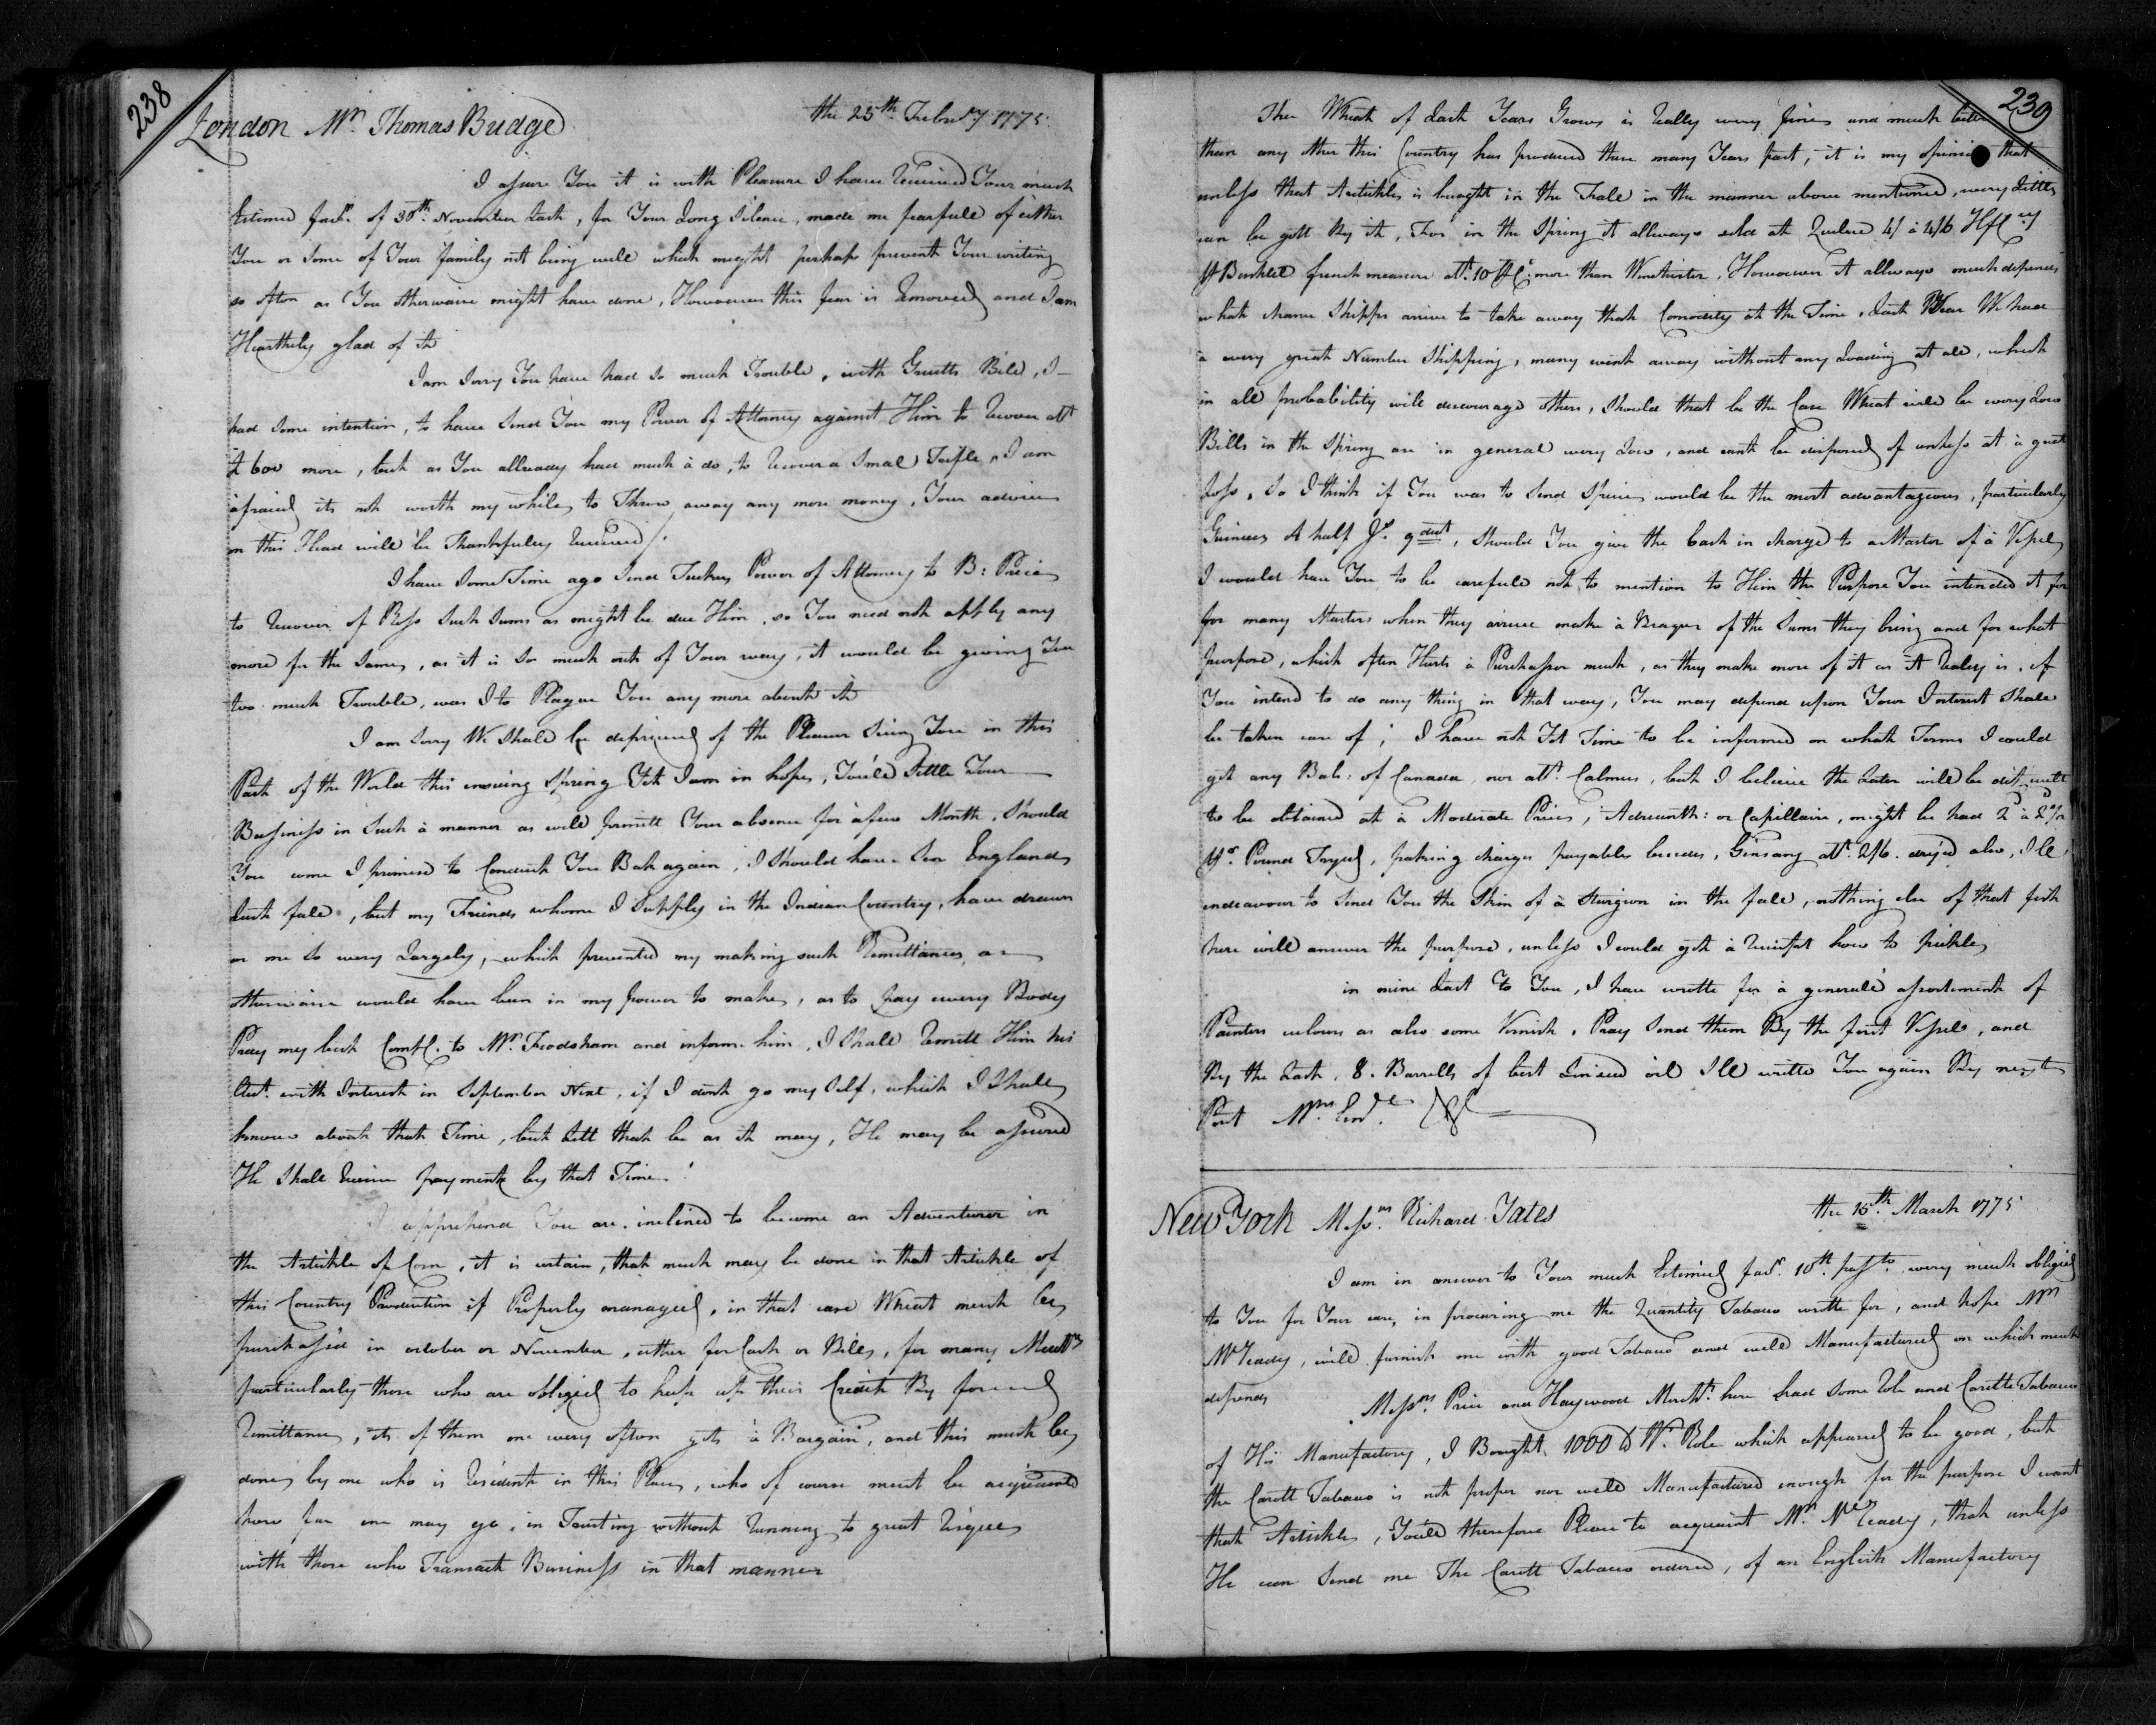 238
London Mr. Thomas Bridge the 25th. Febru'y 1775.
I assure You it is with Pleasure I have Received Your much
Estimed favr. of 30th. November Last, for Your Long Silence, made me fearfull of either
You or Some of Your family not being well which might perhaps prevent Your writing
so often as You otherwaise might have done, Howaever this fear is Removed and I am
Hearthely glad of it
I am Sorry You have had so much Trouble, with Gruetts Bill, I
had Some intention, to have Send You my Power of Attorney against Him to Recover abt
£ 600 more, but as You allready had much à do, to Recover a Small Trifle, I am
afraid its not worth my while to Throw away any more money, Your advice
on this Head will be Thankfuley Received /.
I have Some Time ago Send Tuckers Power of Attorney to B: Price
to Recover of Ross Such Sums as might be due Him, so You need not apply any
more for the Same, as it is So much out of Your way, it would be giving You
too much Trouble, was I to Plague You any more about it
I am Sorry We Shall be deprived of the Pleasure Seeing You in this
Part of the World this ensuing Spring Yett I am in hopes, You'le Settle Your
Bussiness in Such à manner as will permitt Your absence for a few Month, Should
You come I promise to Conduct You Bak again, I Should have Seen England
Last fall, but my Friends whome I Supply in the Indian Country, have drawn
on me So very Largely, which prevented my making such Remittances, as
otherwaise would have been in my power to make, as to pay every Body
Pray my best Compl. to Mr. Frodsham and inform him, I Shall Remitt Him his
Acct. with Interest in September Next, if I dont go my Self, which I Shall
know about that Time, but Lett that be as it may, He may be assured
He Shall Receive payment by that Time.
I apprehend You are inclined to become an Adventurer in
the Artickle of Corn, it is certain, that much may be done in that Artickle of
this Country Production if Properly managed, in that case Wheat must be
purchas'd in october or November, either for Cash or Bills, for many Merchts
particularly those who are obliged to keep up their Credit By forced
Remittances, its of them one very often gets à Bargain, and this must be
done by one who is Resident in this Place, who of course must be acquainted
how far one may go, in Trusting without Running to great Risque
with those who Transact Business in that manner
239
The Wheat of Last Years Grows is Really very fine and much better
than any other this Country has produced these many Years past, it is my opinion that
unless that Artickle is bought in the Fale in the manner above mentioned, very Little
can be gott By it, For in the Spring it allways sold at Quebec 4/ à 4/6
Bushell french measure abt. 10 more than Winchister, Howaever it allways much depends
what Shipps arrive to take away that Comodity at the Time, Last Year We had
à very great Number Shipping, many went away without any Loading at all, which
in all probability will discourage others, Should that be the Case Wheat will be very Low
Bills in the Spring are in general very Low, and cant be disposed of unless at à great
Loss, So I think if You was to Send Specie would be the most advantageous, particularly
Guineas & half Do. 9 dwt, Should You give the Cash in charge to a Master of à Vessel
I would have You to be carefull not to mention to Him the Purpose You intended it for
for many Masters when they arrive make à Brague of the Sums they bring and for what
purpose, which often Hurts à Purchasser much, as they make more of it as it Realey is, if
You intend to do any thing in that way, You may depend upon Your Interest Shall
be taken care of; I have not Yet Time to be informed on what Terms I could
get any Bals: of Canada, nor abt. Calmus, but I believe the Later will be dificult
to be obtained at à Moderate Price, or Capillaire, might be had 2 à
Pr. Pound Dryed, paking charges payable besides, Ginsang abt. 2/6. dryed also, I'le
endeavour to Send You the Skin of à Sturgeon in the fall, nothing else of that fish
here will answer the purpose, unless I could get à Receipt how to pickle
in mine Last To You, I have wrotte for à generall assortment of
Painters colours as also some Vernish, Pray Send them By the first Vessel, and
By the Last, 8. Barrells of best Linseed oil I'le write You again By next
Post
New York Messrs. Richard Yates the 16th. March 1775
I am in answer to Your much Estimed favr. 10th. passto. very much obliged
to You for Your care, in procuring me the Quantity Tabacco wrotte for, and hope Mr
McReady, will furnish me with good Tabacco and well Manufactured on which much
depends
Messrs. Price and Haywood Mercht. here had Some Role and Carotte Tabacco
of His Manufactory, I Bought 1000 lb Wt. Role which appeared to be good, but
the Carott Tabacco is not proper nor well Manufactured enough for the purpose I want
that Artickle, You'le therefore Please to acquaint Mr. McReady, that unless
He can Send me The Carott Tabacco ordered, of an English Manufactory